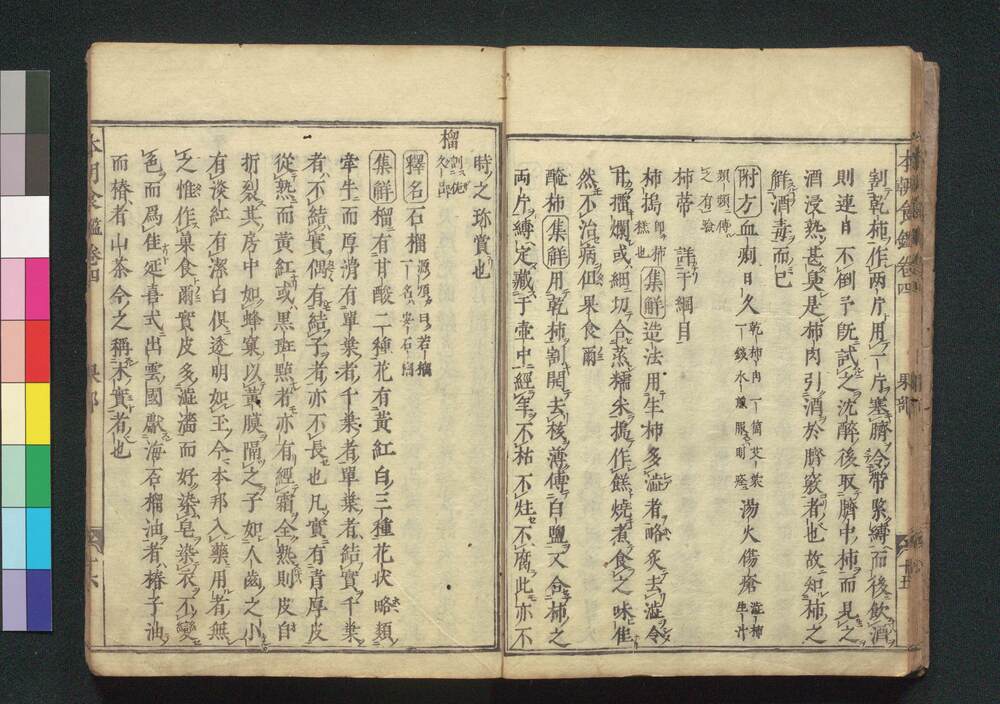 本朝食鑑卷四 果部 十五
割乾柿作兩片用一片塞臍令帶緊縛而後飲酒
則連日不倒予既試之沈醉後取臍中柿而見之
酒浸熟甚臭是柿肉引酒於臍竅者也故知柿之
解酒毒而已
附方血痢日久乾柿肉一箇艾葉一錢水煎服則痊湯火傷瘡澁柿生汁
頻頻傅之有驗
柿蒂 詳于綱目
柿搗即柿糕也集解造法用生柿多澁者略炙去澁令
甘擂爛或細切合蒸糯米搗作餻燒煮食之味佳
然不治病但果食爾
醃柿集解用乾柿割開去核薄傅白鹽又合柿之
兩片縛定藏于壺中經年不枯不㿈不腐此亦不
時之珍賞也
榴訓佐久呂
釋名石榴源順曰若榴一名安石榴
集解榴有甘酸二種花有黃紅白三種花狀略類
牽牛而厚滑有單葉者千葉者單葉者結實千葉
者不結實偶有結子者亦不長也凡實有青厚皮
從熟而黃紅或黑斑點者亦有經霜全熟則皮自
折裂其房中如蜂窠以黃膜隔之子如人齒之小
有淡紅有潔白俱透明如玉今本邦入藥用者無
之惟作菓食爾實皮多澁濇而好染皂染衣不變
色而爲佳延喜式出雲國獻海石榴油者椿子油
而椿者山茶今之稱木實者也
本朝食鑑卷四 果部 十六